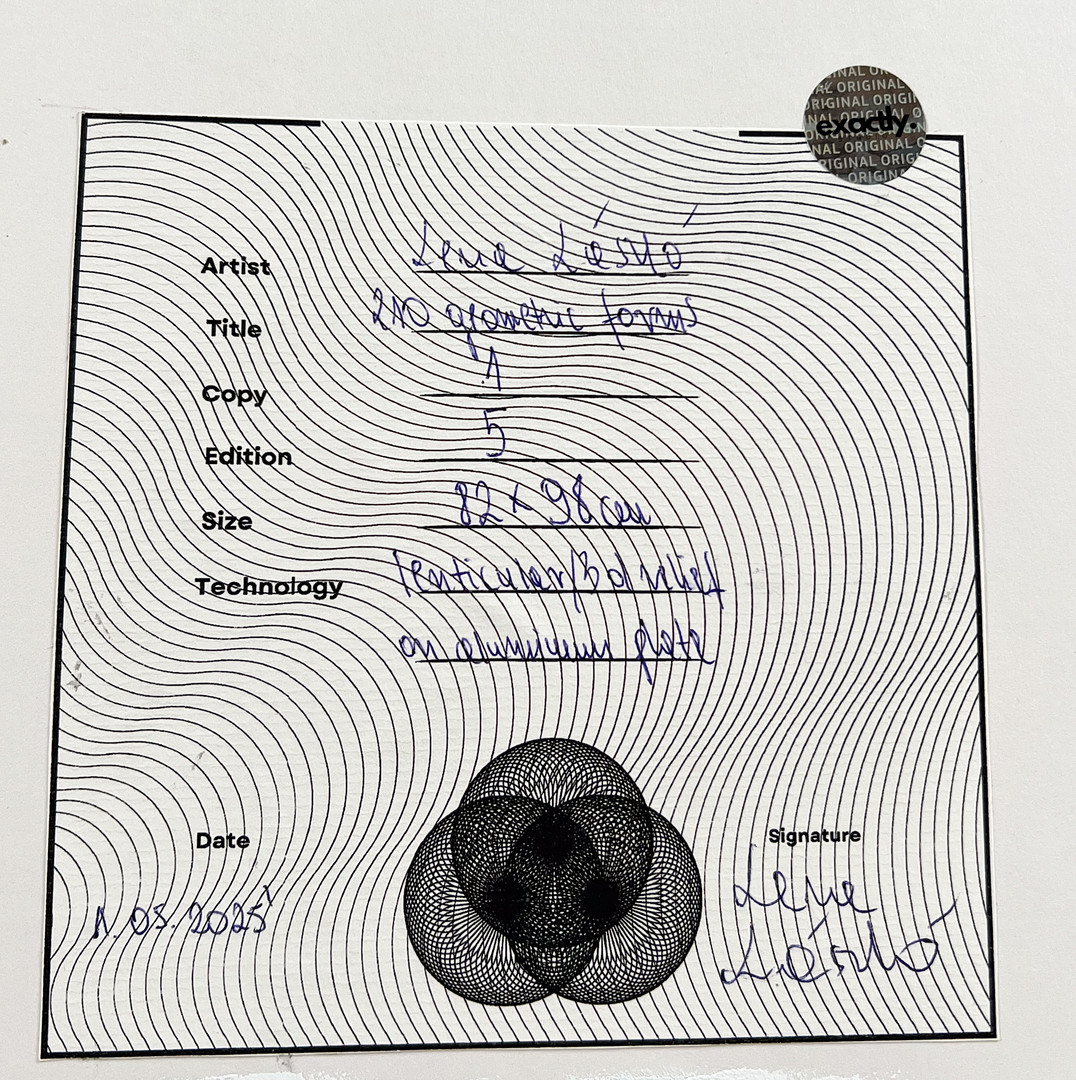 ORIGINAL
exactly.
Artist Lena László
Title 210 geometric forms
Copy 1
Edition 5
Size 82 x 98 cm
Technology lenticular/3d relief
on aluminium plate
Date
Signature
1.05.2025
Lena
László